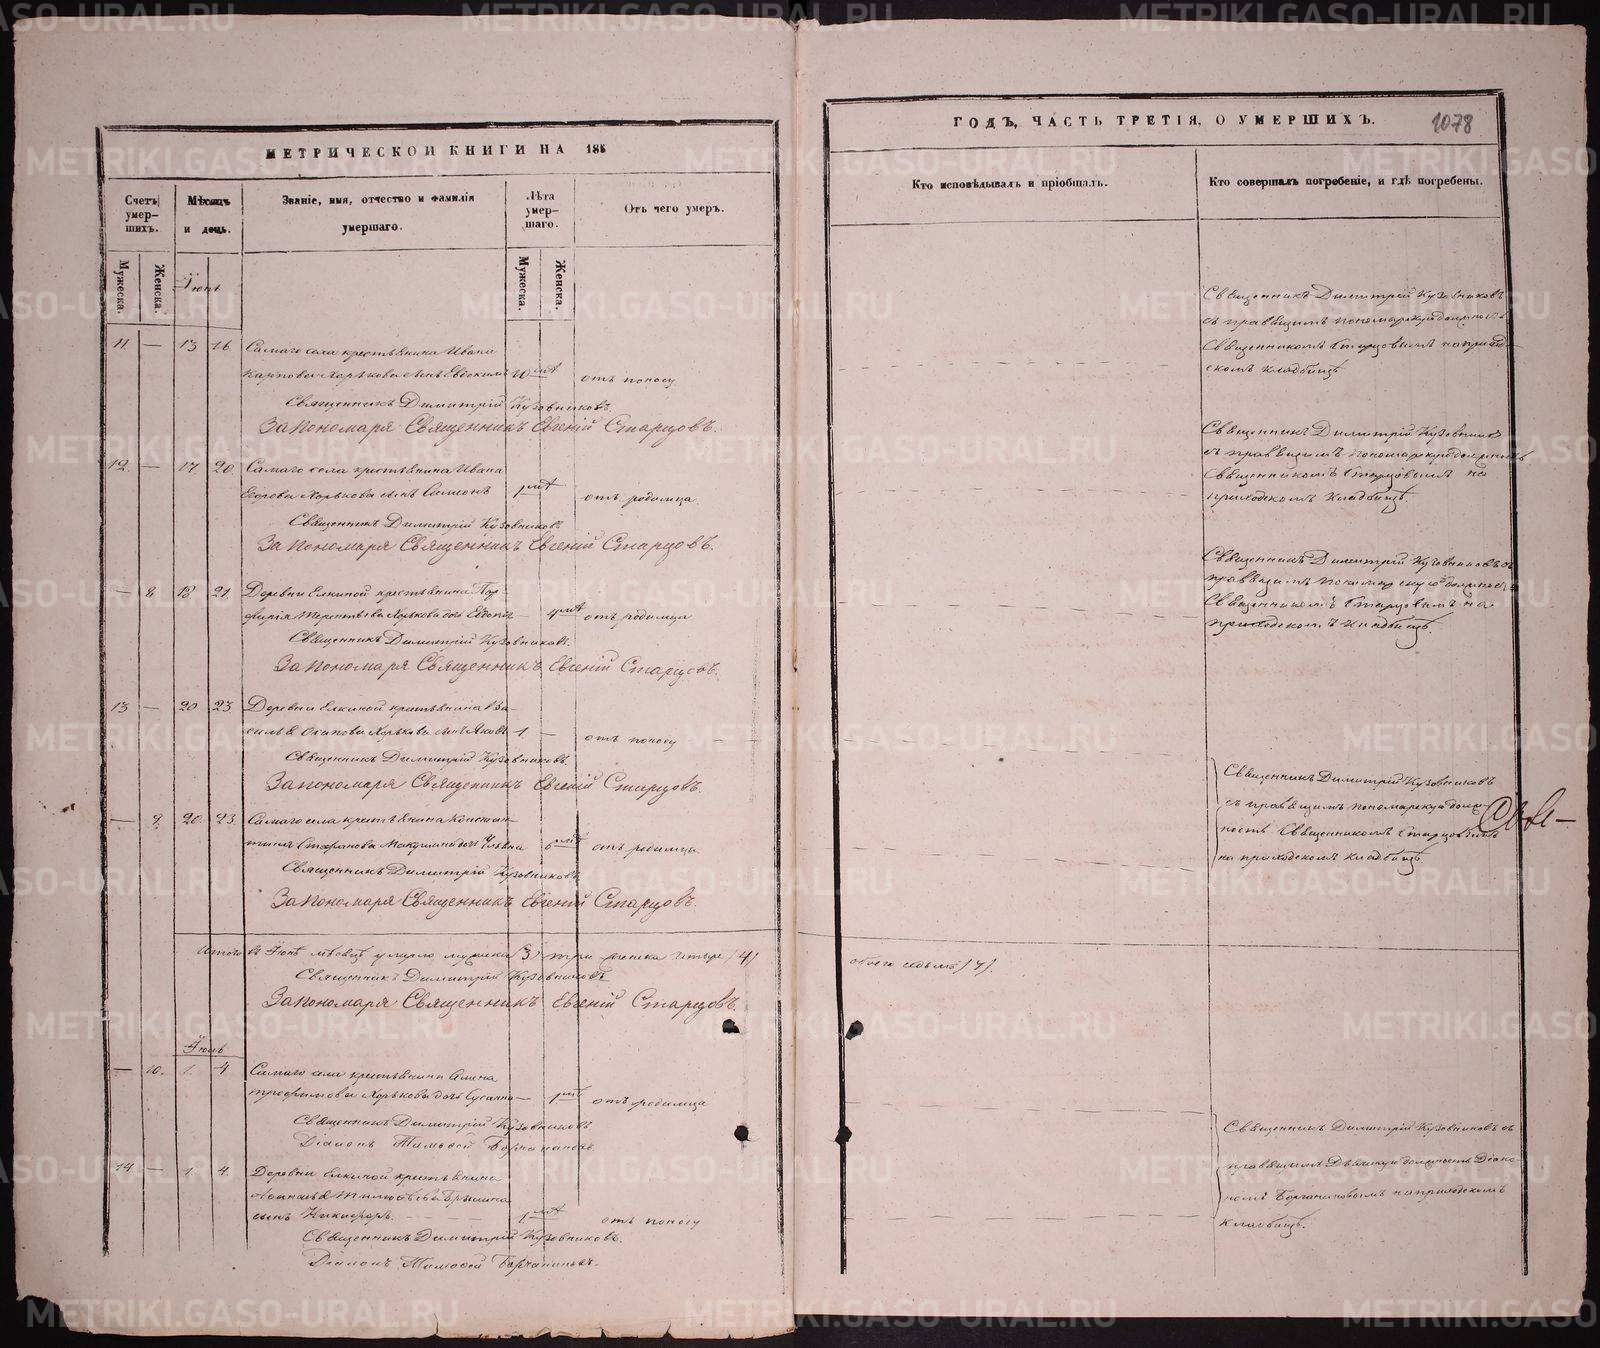 МЕТРИЧЕСКОЙ КНИГИ НА 185
Счетъ умер-шихъ.
Мѣсяцъ и день.
Званіе, имя, отчество и фамилія умершаго.
Лѣта умер-шаго.
Отъ чего умеръ.
Мужеска.
Женска.
Мужеска.
Женска.
Іюнь
11. — 13 16 Самаго села крестьянина Ивана
Карпова Хорькова сынъ 10 отъ поносу
Священникъ Димитрій Кузовниковъ.
За пономаря Священникъ Евгеній Старцовъ.
12. — 17 20 Самаго села крестьянина Ивана
Егорова Хорькова сынъ Симеонъ 1 отъ родимца
Священникъ Димитрій Кузовниковъ
За пономаря Священникъ Евгеній Старцовъ.
— 8 18. 21. Деревни Елкиной крестьянина Пор-
фирія Терентьева Хорькова дочь 4 отъ родимца
Священникъ Димитрій Кузовниковъ.
За пономаря Священникъ Евгеній Старцовъ.
13 — 20 23. Деревни Елкиной крестьянина Ва-
силья Осипова Хорькова сынъ Яковъ 1 — отъ поносу
Священникъ Димитрій Кузовниковъ.
За пономаря Священникъ Евгеній Старцовъ.
— 9. 20. 23. Самаго села крестьянина Констан-
тина Стефанова дочь 6 отъ родимца
Священникъ Димитрій Кузовниковъ
За пономаря Священникъ Евгеній Старцовъ.
Итого въ Іюнѣ мѣсяцѣ умерло мужеска (3) три женска четыре (4)
Священникъ Димитрій Кузовниковъ
За пономаря Священникъ Евгеній Старцовъ.
Іюль
— 10. 1. 4 Самаго села крестьянина
Трофимова Хорькова дочь 1 отъ родимца
Священникъ Димитрій Кузовниковъ
Діаконъ
14 — 1. 4. Деревни Елкиной крестьянина
сынъ Никифоръ. 1 отъ поносу
Священникъ Димитрій Кузовниковъ.
Діаконъ
ГОДЪ, ЧАСТЬ ТРЕТІЯ, О УМЕРШИХЪ.
1078
Кто исповѣдывалъ и пріобщалъ.
Кто совершалъ погребеніе, и гдѣ погребены.
Священникъ Димитрій Кузовниковъ
съ правящимъ пономарскую должность
Священникомъ Старцовымъ на приход-
скомъ кладбищѣ
Священникъ Димитрій Кузовниковъ
съ правящимъ пономарскую должность
Священникомъ Старцовымъ на
приходскомъ кладбищѣ.
Священникъ Димитрій Кузовниковъ съ
правящимъ пономарскую должность
Священникомъ Старцовымъ на
приходскомъ кладбищѣ.
Священникъ Димитрій Кузовниковъ
съ правящимъ пономарскую долж-
ность Священникомъ Старцовымъ
на приходскомъ кладбищѣ.
обоего седьмь (7).
Священникъ Димитрій Кузовниковъ съ
правящимъ должность Діако-
номъ на приходскомъ
кладбищѣ.
METRIKI.GASO-URAL.RU